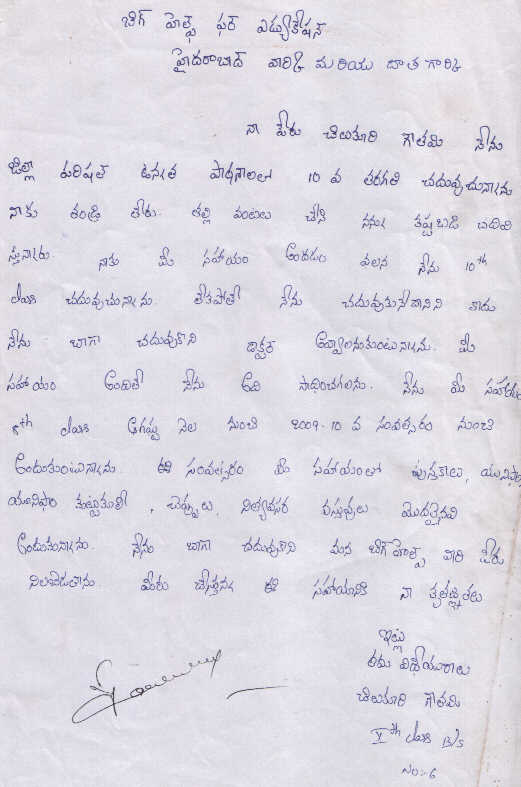 బిగ్ హెల్ప్ ఫర్ ఎడ్యుకేషన్
హైదరాబాద్ వారికి మరియు దాత గారికి
నా పేరు చిలుకూరి గౌతమి నేను
జిల్లా పరిషత్ ఉన్నత పాఠశాలలో 10 వ తరగతి చదువుచున్నాను
నాకు తండ్రి లేరు. తల్లి వంటలు చేసి నన్ను కష్టబడి చదివి
స్తున్నారు. నాకు మీ సహాయం అందడం వలన నేను 10th
class చదువుచున్నాను. లేకపోతే నేను చదువుకునేదానిని కాదు
నేను బాగా చదువుకొని డాక్టర్ అవ్వాలనుకుంటున్నాను. మీ
సహాయం అందితే నేను అది సాధించగలను. నేను మీ సహాయం
8th class ఆగష్టు నెల నుంచి 2009-10 వ సంవత్సరం నుంచి
అందుకుంటున్నాను. ఈ సంవత్సరం మీ సహాయంలో పుస్తకాలు, యునిఫాం
యూనిఫాం కుట్టుకూలి, చెప్పులు, నిత్యావసర వస్తువులు మొదలైనవి
అందుకున్నాను. నేను బాగా చదువుకొని మన బిగ్ హెల్ప్ వారి పేరు
నిలబెడతాను. మీరు చేస్తున్న ఈ సహాయానికి నా కృతజ్ఞతలు
ఇట్లు
తమ విధేయురాలు
చిలుకూరి గౌతమి
class B/S
No:-6